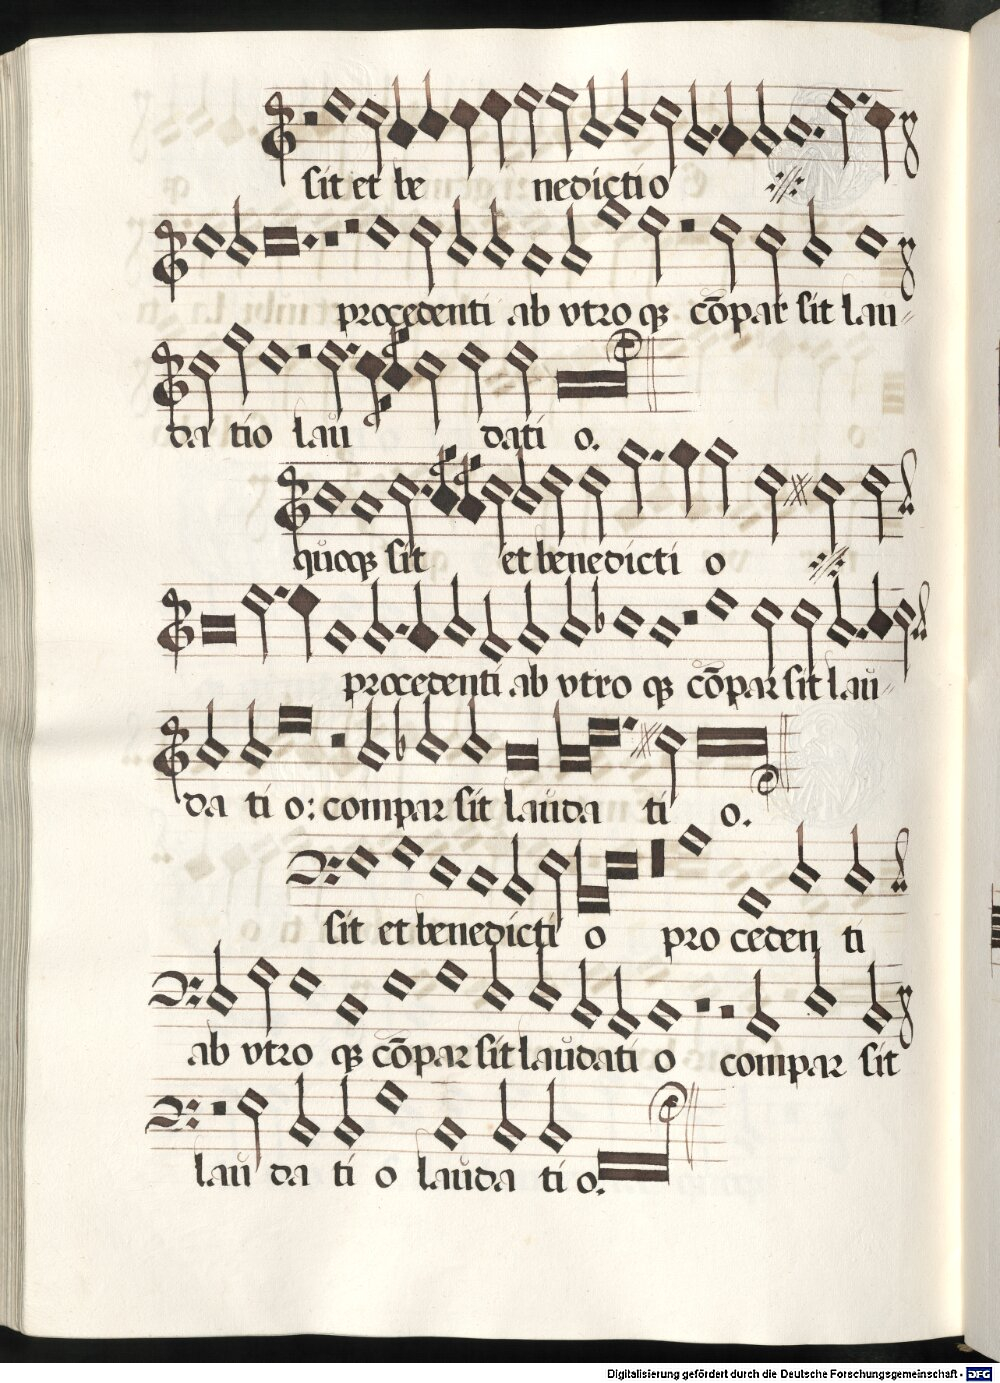 sit et be nedictio ⁒
procedenti ab vtro qꝫ cōpar sit lau⸗
da tio lau dati o.
quoqꝫ sit et benedicti o ⁒
procedenti ab vtro qꝫ cōpar sit lau⸗
da ti o: compar sit lauda ti o.
sit et benedicti o pro ceden ti
ab vtro qꝫ cōpar sit laudati o compar sit
lau da ti o lauda ti o.
Digitalisierung gefördert durch die Deutsche Forschungsgemeinschaft - DFG